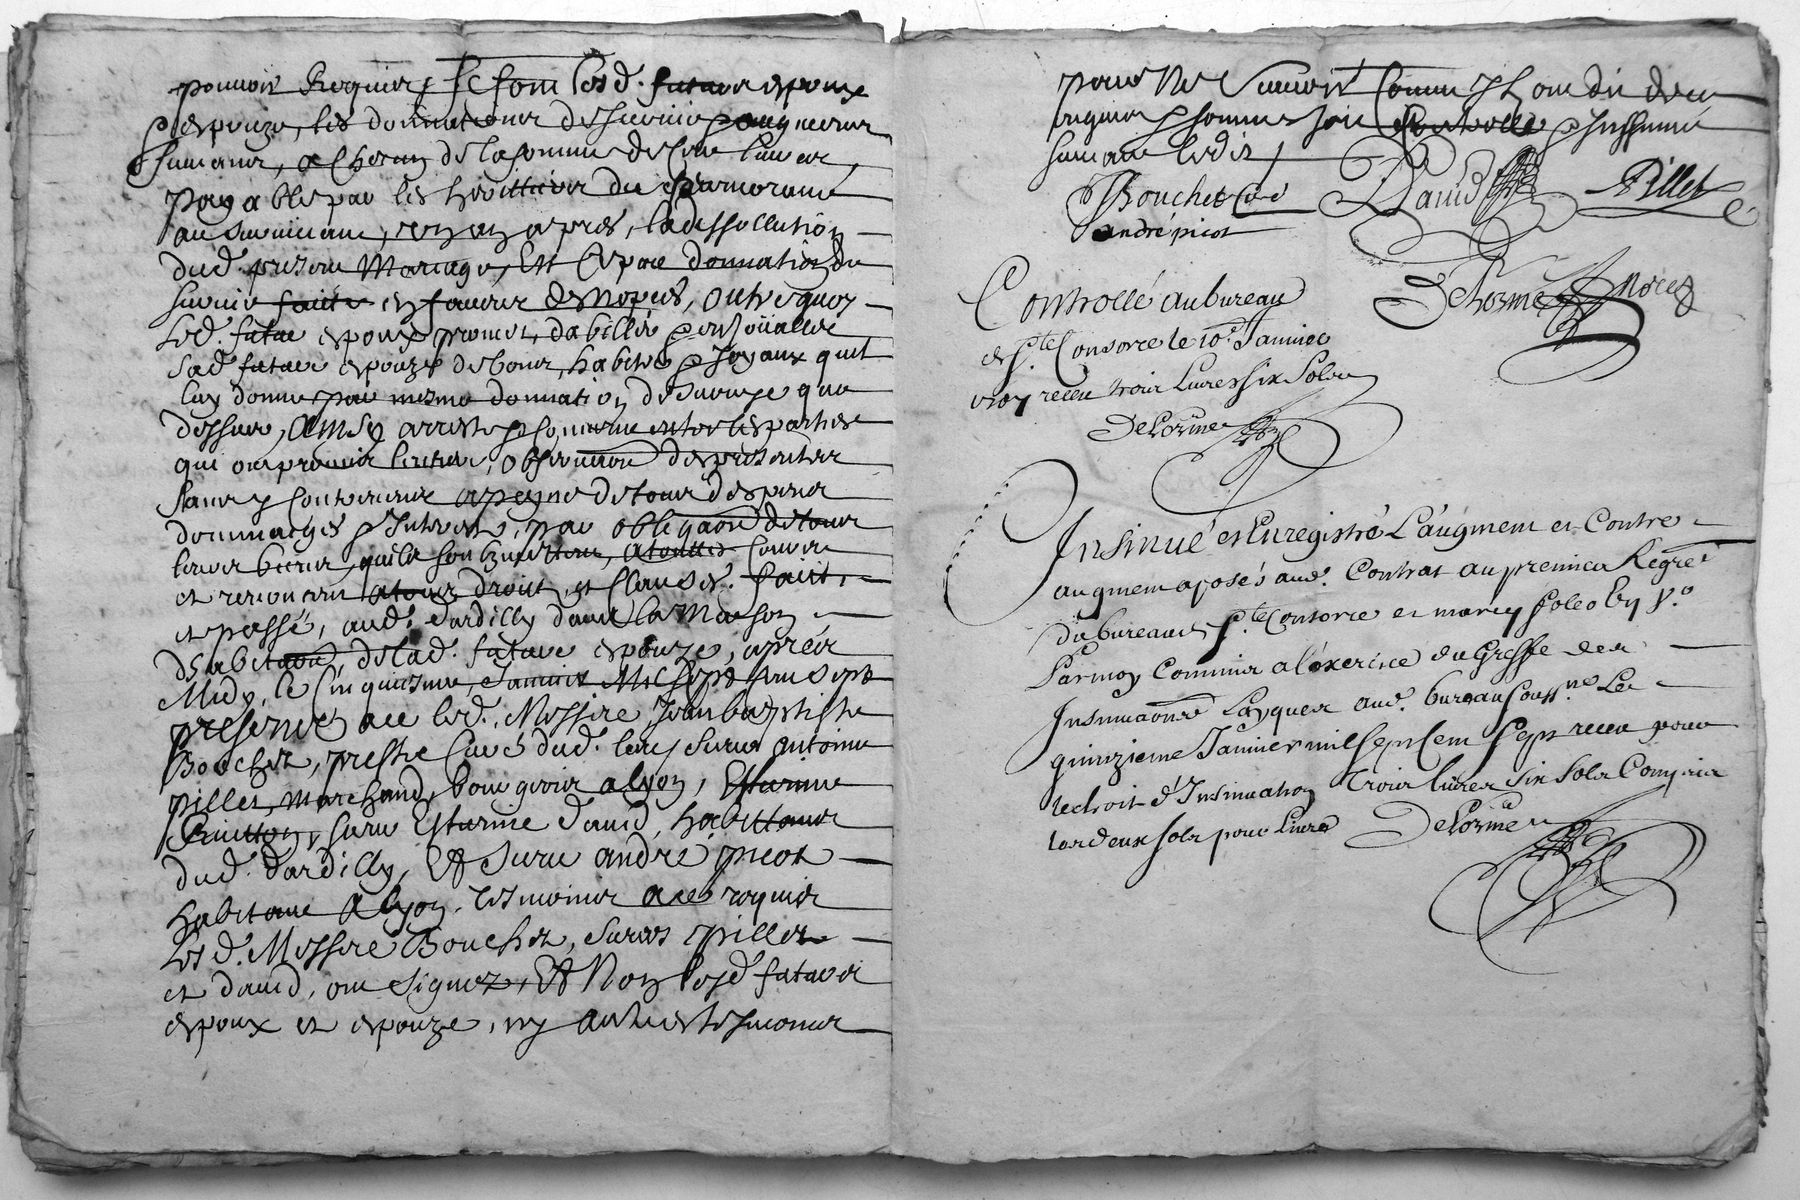 pouvoir Requerir, Se font lesd. futurs espoux
& espouze, les donnations de survie pauquerir
survenir, a chacun de la somme de cent livres
payables par les heritiers du premourant
au survivant, un an apres, la dissollution
dud. present mariage, Est Cepar donnation de
survie faitte en faveur de nopces, outre quoy
Led. futur espoux promet, dabillier & enjoualler
sad. future espouze de bons, habits & Joyaux quil
luy donne par mesme donnation de survye que
dessus, Ainsy arresté & convenu entre les parties
qui ont promis lentier, observation de presenter
sans y contrevenir a peyne de tous despens
dommages & Interests, par obligation de tous
leurs biens, quils soubmettent, a touttes Cours
et renoncent a tous droits, et Clauses. Fait,
et passé, aud. dardilly dans la Maison
d'abitation, de lad. future espouze, apres
Midy, le Cinquiesme, Janvier Mil sept Cent sept
presence de led. Messire Jean baptiste
Bouchet, prestre Curé dud. lieu, sieur Antoine
pillet, Marchand, bourgeois a lyon, Estienne
sieur Estienne david, habittant
dud. dardilly, Et sieur andré picot
habitant a lyon, tesmoins a ce requis
Lesd. Messire Bouchet, sieurs pillet
et david, ont signez, Et Non lesd futurs
espoux et espouze, ny autres tesmoins
pour Ne scavoir Comme Ils ont dit de ce
requis & sommes soit Controllé & Insinué
suivant ledit
Bouchet Curé David Pillet
andré picot
Controllé au bureau Delorme Nore
de Ste Consorce le 10e Janvier
1707 receu trois Livres six Sols
Delorme
Insinué et Enregistré L'augment et Contre
augment aposés aud. Contrat au premier Regre
du bureau de Ste Consorce et marcy folio
Par moy Commis a l'exercice du Greffe des
Insinuations Layques aud. bureau souss.né Le
quinzieme Janvier mil sept Cent sept receu pour
le droit d'Insinuation Trois livres six Sols Compris
les deux sols pour Livre Delorme